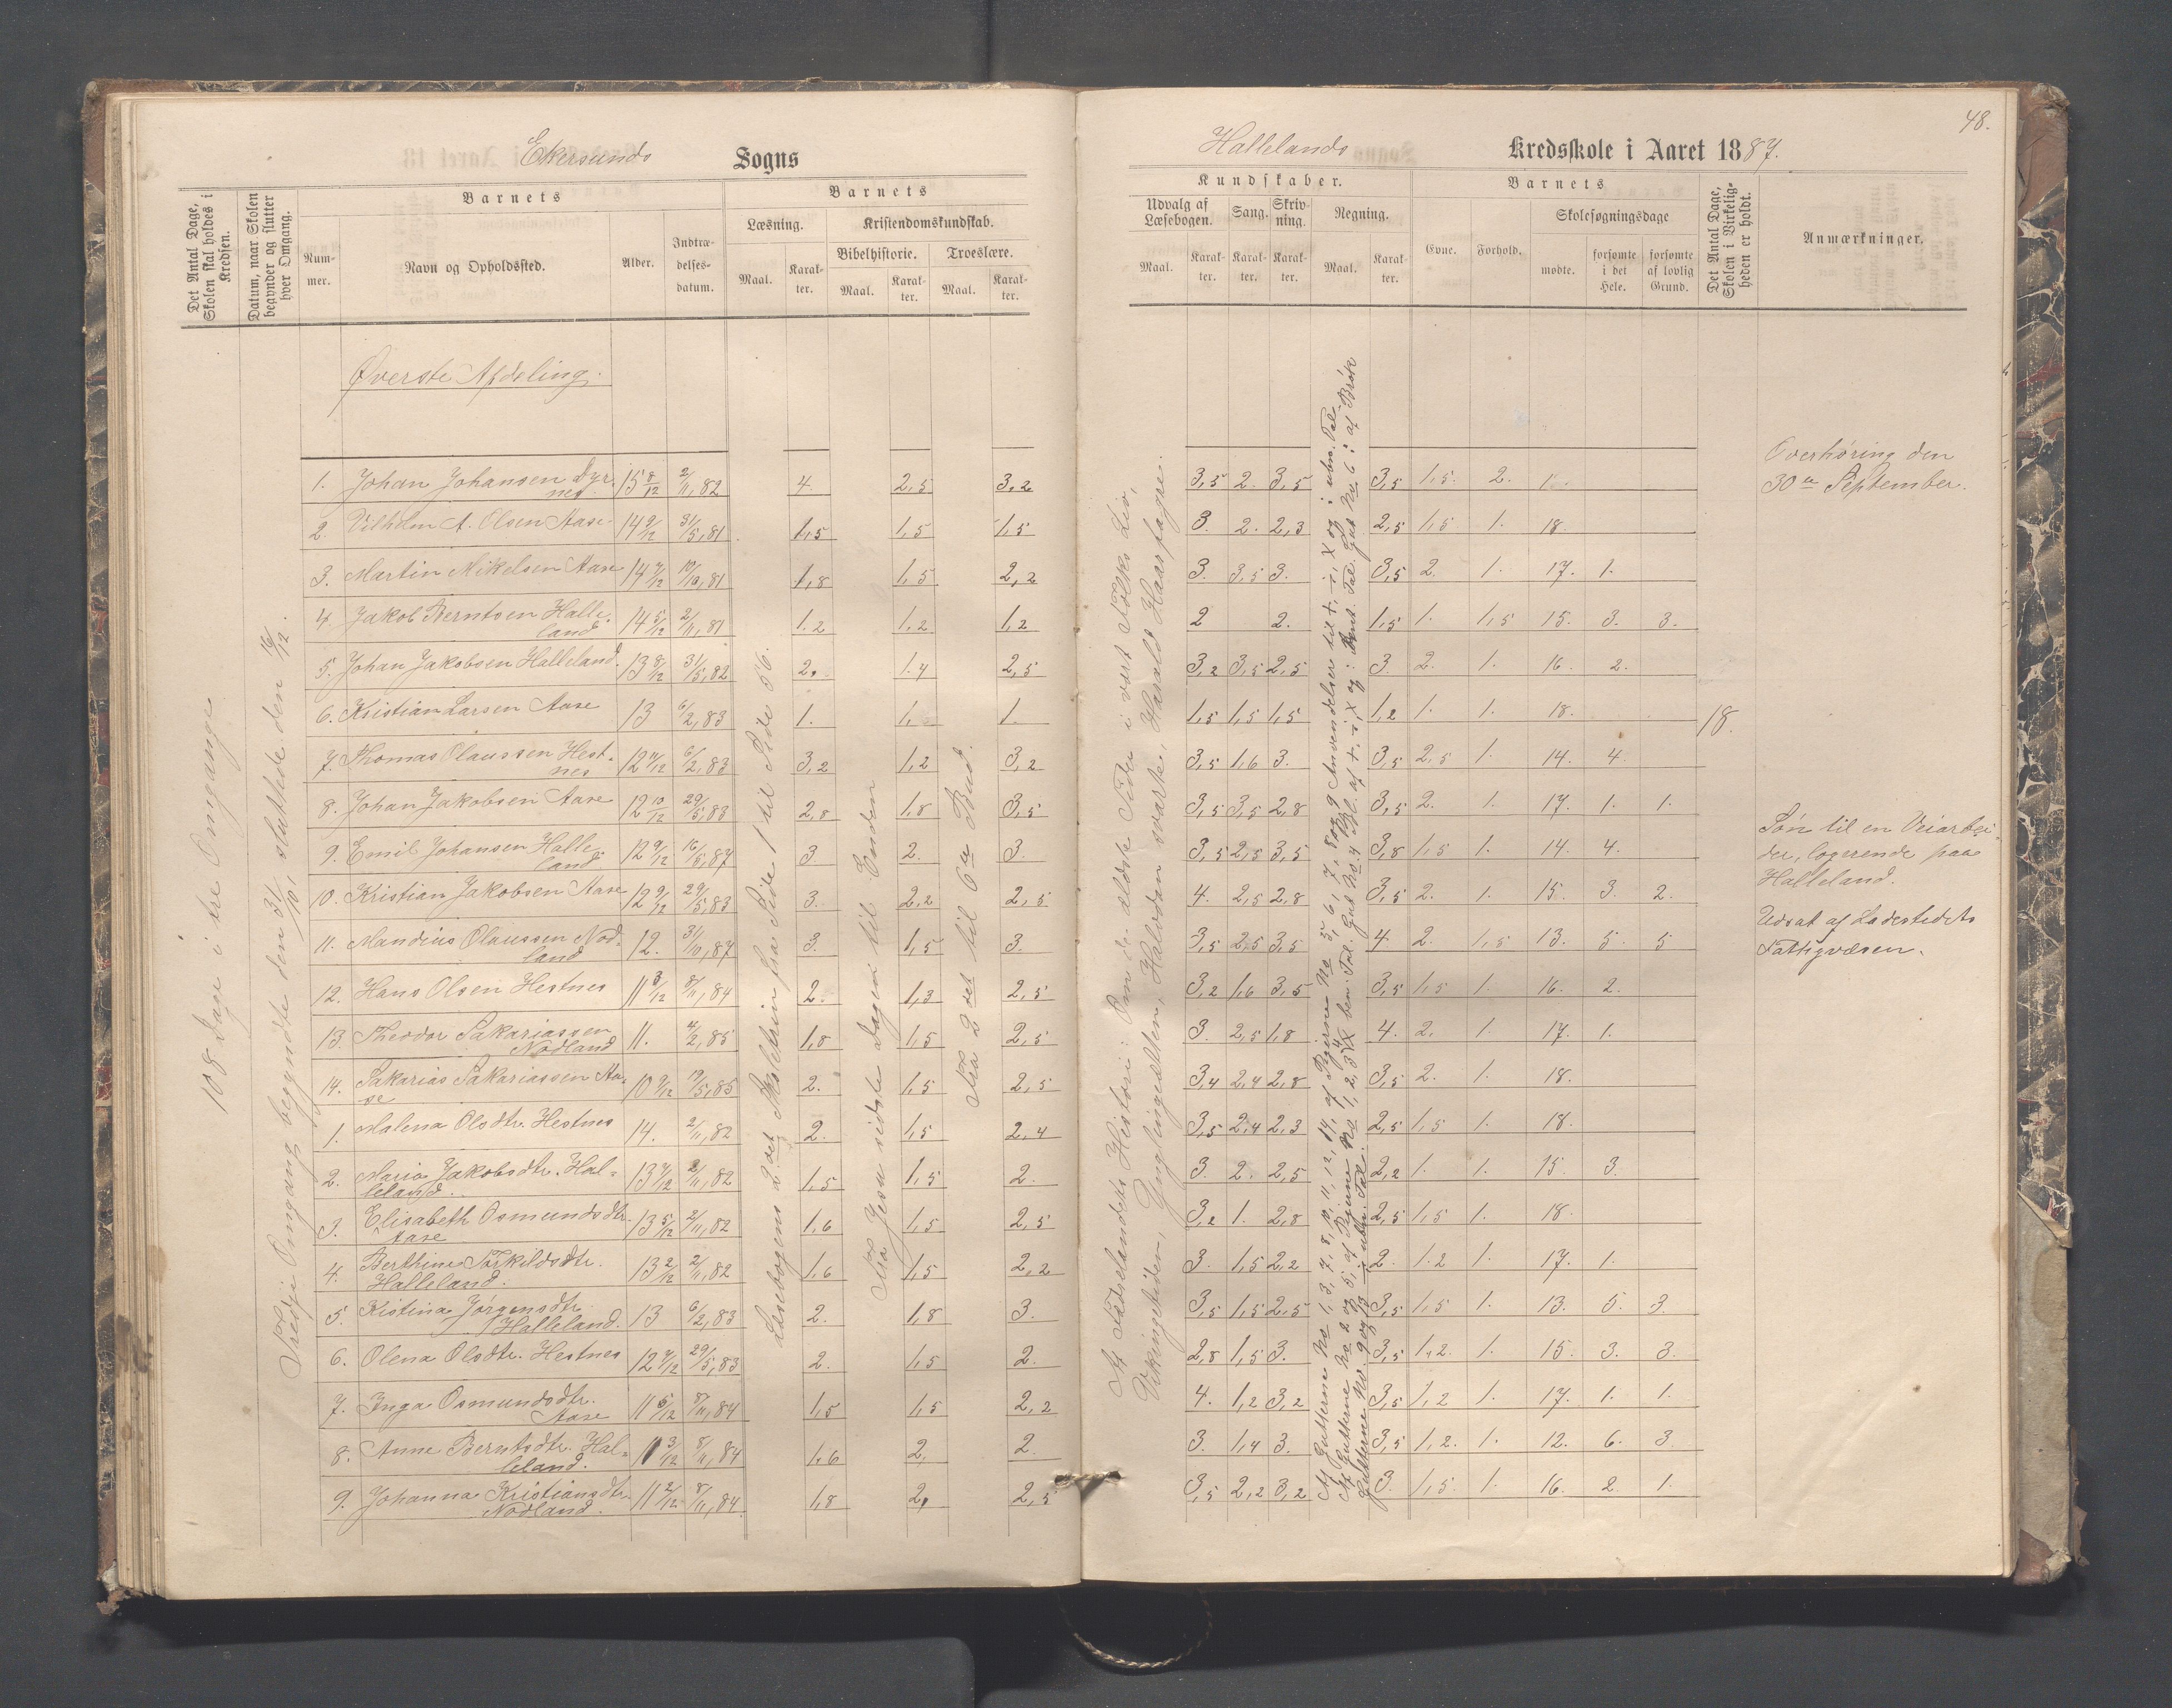 Ekersunds Sogns
Hallelands Kredsskole i Aaret 1887.
48.
Det Antal Dage, Skolen skal holdes i Kredsen.
Datum, naar Skolen begynder og slutter hver Omgang.
Barnets
Nummer.
Navn og Opholdssted.
Alder.
Indtrædelsesdatum.
Barnets
Læsning.
Maal.
Karakter.
Kristendomskundskab.
Bibelhistorie.
Maal.
Karakter.
Troeslære.
Maal.
Karakter.
Kundskaber.
Udvalg af Læsebogen.
Maal.
Karakter.
Sang.
Karakter.
Skrivning.
Karakter.
Regning.
Maal.
Karakter.
Barnets
Evne.
Forhold.
Skolesøgningsdage
mødte.
forsømte i det Hele.
forsømte af lovlig Grund.
Det Antal Dage, Skolen i Virkeligheden er holdt.
Anmærkninger.
108 Dage i tre Omgange
Tredje Omgang begyndte den 31/10, sluttede den 16/12.
Øverste Afdeling.
Læsebogens 2det Skoletrin fra Side 1 til Side 56.
Fra Jesu sidste Dage til Enden
Fra 2det til 6te Bud.
Af Fædrelandets Historie: Om de ældste Tider i vort Folks Liv,
Vikingetiden, Ynglingeætten, Halvdan svarte, Harald Haarfagre.
Overhøring den
30te September.
1. Johan Johansen Dyrnes. 15 8/12 2/11,82 4. 2,5 3,2 3,5 2. 3,5 3,5 1,5. 2.
2. Vilhelm A. Olsen Aase. 14 9/12 31/5,81 1,5 1,5 1,5 3. 2. 2,3 2,5 1,5 1. 18.
3. Martin Mikelsen Aase 14 7/12 10/10,81 1,8 1,5 2,2 3. 3,5 3. 3,5 2. 1. 17. 1.
4. Jakob Berntsen Halleland 14 5/12 2/11,81 1.2 1,2 1,2 2 2. 1,5 1. 1,5 15. 3. 3.
5. Johan Jakobsen Halleland. 13 8/12 31/5,82 2. 1.4 2,5 3,2 3,5 2,5 3. 2. 1. 16. 2.
6. Kristian Larsen Aase 13 6/2,83 1. 1, 1. 1,5 1,5 1,5 1,2 1. 1. 18.
18.
7. Thomas Olaussen Hestnes 12 11/12 6/2,83 3,2 1,2 3,2 3,5 1,6 3. 3,5 2,5 1. 14. 4.
8. Johan Jakobsen Aase 12 10/12 29/5,83 2,8 1,8 3,5 3,5 3,5 2,8 3,5 2. 1. 17. 1. 1.
9. Emil Johansen Halleland 12 9/12 16/5,87 3. 2. 3. 3,5 2,5 3,5 3,8 1,5 1. 14. 4.
Søn til en Veiarbeider, logerende paa Halleland.
10. Kristian Jakobsen Aase 12 9/12 29/5,83 3. 2,2 2,5 4. 2,5 2,8 3,5 2. 1. 15. 3. 2.
11. Mandius Olaussen Nodland 12. 31/10,87 3. 1,5 3. 3,5 2,5 3,5 4. 2. 1,5 13. 5. 5
Udsat af Ladestedets
Fattigvæsen.
12. Hans Olsen Hestnes 11 3/12 8/11,84 2. 1,3 2,5 3,2 1,6 3,5 3,5 1,5 1. 16. 2.
13. Theodor Sakariassen Nodland 11. 4/2,85 1,8 1,5 2,5 3. 2,5 1,8 4. 2. 1. 17. 1.
14. Sakarias Sakariassen Aase 10 9/12 19/5,85 2. 1,5 2,5 3,4 2,4 2,8 3,5 2. 1. 18.
1. Malena Olsdtr. Hestnes 14. 2/11,82 2. 1,5 2,4 3,5 2,4 2,3 2,5 1,5 1. 18.
2. Maria Jakobsdtr. Halleland. 13 7/12 2/11,82 1,5 1,5 2. 3. 2. 2,5 2,2 1. 1. 15. 3.
3. Elisabeth Osmundsdtr. Aase 13 5/12 2/11,82 1,6 1,5 2,5 3,2 1. 2,8 2,5 1,5 1. 18.
4. Berthine Torkildsdtr. Halleland. 13 2/12 2/11,82 1,6 1,5 2,2 3. 1,5 2,2 2. 1.2 1. 17. 1.
5. Kistina Jørgensdtr. Halleland. 13 6/2,83 2. 1,8 3. 3,5 1,5 2,5 3,5 1,5 1. 13. 5. 3.
6. Olena Olsdtr. Hestnes 12 7/12 29/5,83 2. 1,5 2. 2,8 1,5 3. 3,5 1,2. 1. 15. 3. 3.
7. Inga Osmundsdtr. Aase 11 5/12 8/11,84 1,5 1,5 2,2 4. 1,2 3,2 3,5 1,2 1. 17. 1. 1.
8. Anne Berntsdtr. Halleland. 11 3/12 8/11,84 1,6 2. 2. 3. 1,4 3. 3,5 1,2. 1. 12. 6. 3
9. Johanna Kristiansdtr. Nodland. 11 2/12 8/11,84. 1,8 2, 2,5 3,5 2,2 3,2 3. 1,5 1. 16. 2 1.